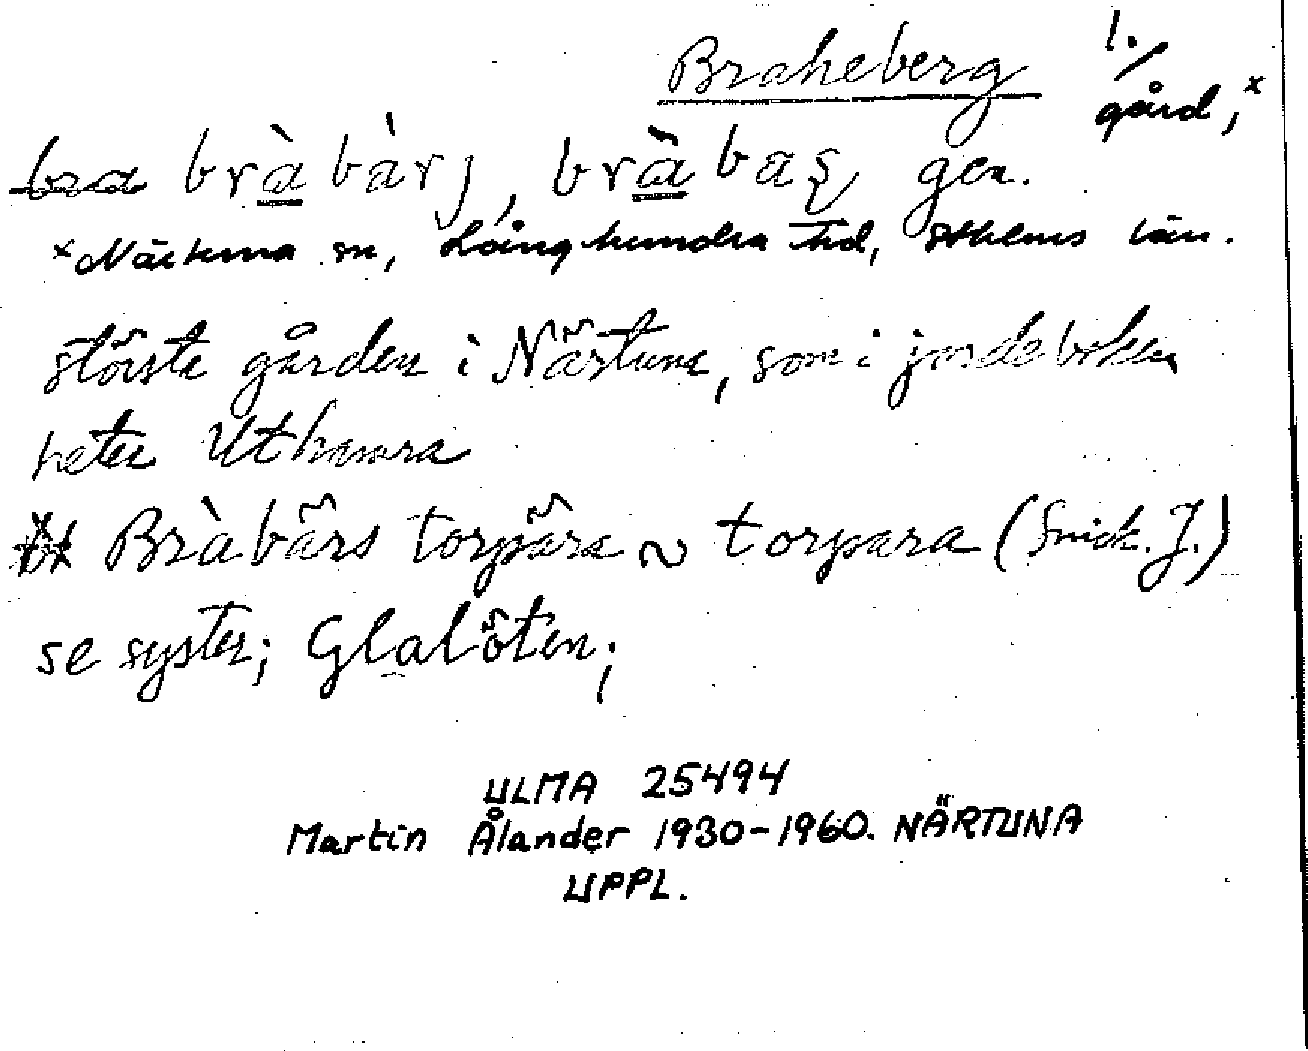 Braheberg 1./
gård,ˣ
bra bràbàrj, bràbaş, gen.
ˣNärtuna sn, Långhundra hd, Sthlms län.
största gården i Närtuna, som i jordeboken
heter Uthamra
Bràbärs torpära ~ torpara (Snick. J.)
se syster; Glalöten;
ULMA 25494
Martin Ålander 1930-1960. NÄRTUNA
UPPL.